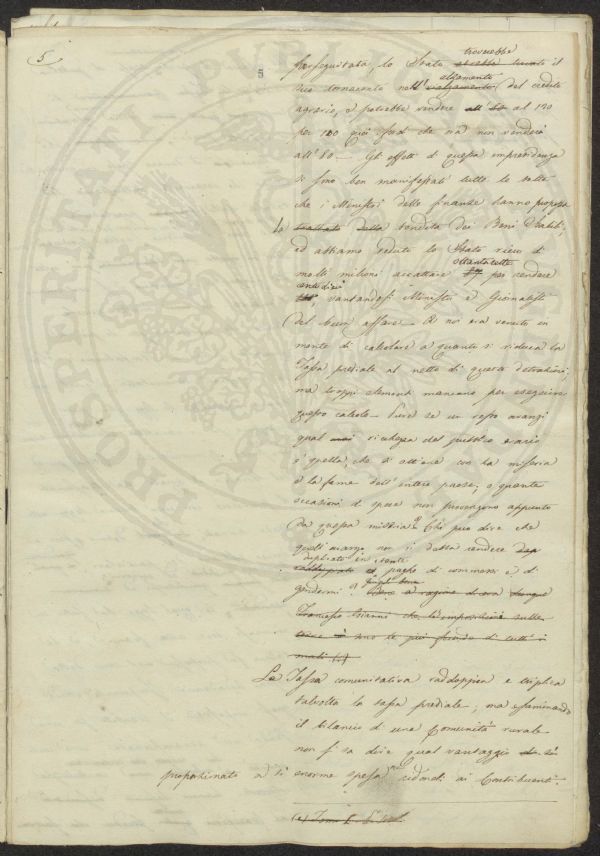 5
troverebbe
perseguitata, lo Stato avrebbe trovato il
suo tornaconto nell' alzamento del credito
agrario, e potrebbe vendere all' 80 al 120
per 100 quei fondi che ora non venderà
all' 80 — Gli effetti di questa imprevidenza
si sono ben manifestati tutte le volte
che i Ministri delle finanze hanno proposto
la vendita dei Beni Stabili,
ed abbiamo veduto lo Stato ricco di
ottantasette
molti milioni accattare 87 per rendere
cento dieci
vantandosi Ministri e Giornalisti
del buon affare — A noi era venuto in
mente di calcolare a quanto si riduca la
Tassa prediale al netto di queste detrazioni;
ma troppi elementi mancano per eseguire
questo calcolo — Pure se un resto avanzi
qual ricchezza del pubblico erario
è quella, che si ottiene con la miseria
e la fame dell' intero paese; e quante
occasioni di spese non provengono appunto
da questa miseria? Chi può dire che
quest' avanzo non si debba rendere
duplicato in tante
paghe di commessi e di
gendarmi?
Francesco Gianni che le imposizioni sulle
terre sono le più feconde di tutti i
mali (1)
La Tassa comunitativa raddoppia e triplica
talvolta la tassa prediale; ma esaminando
il bilancio di una Comunità rurale
non si sa dire qual vantaggio
proporzionato a sì enorme spesa ridondi ai Contribuenti.
(1) Tomo I.